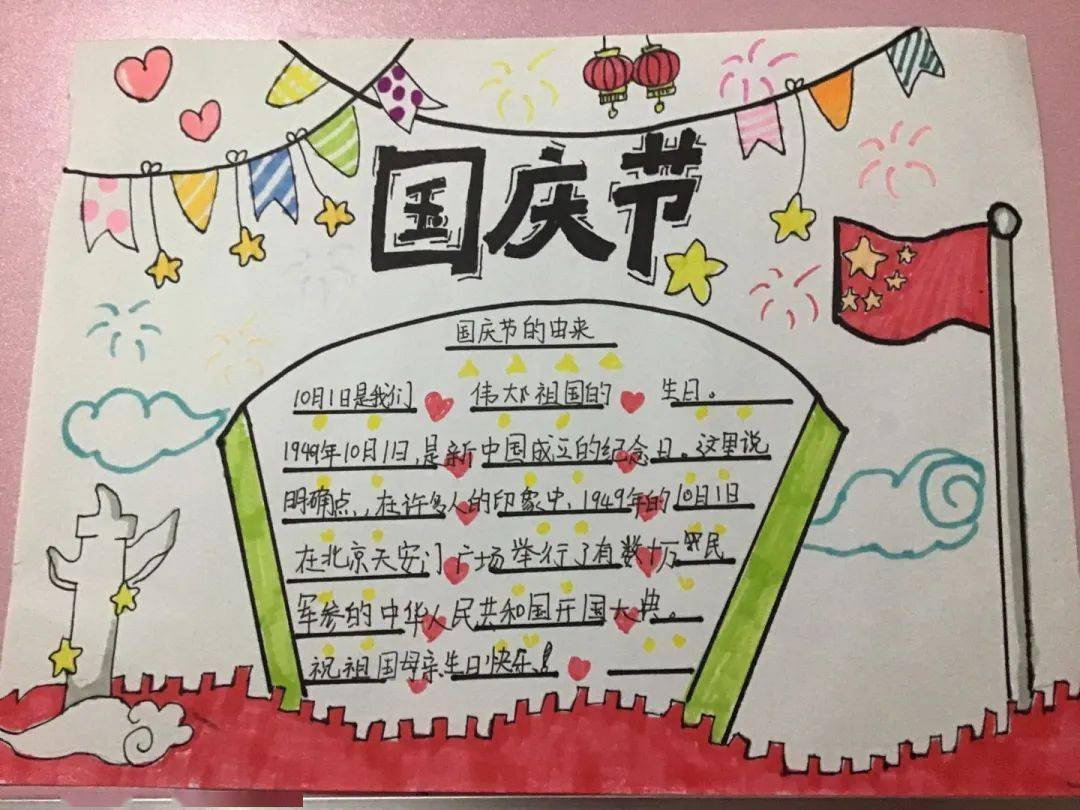 国庆节
国庆节的由来
10月1日是我们 伟大祖国的 生日。
1949年10月1日,是新中国成立的纪念日。这里说
明确点,,在许多人的印象中,1949年的10月1日
在北京天安门广场举行了有数十万军民
军参的中华人民共和国开国大典。
祝祖国母亲生日快乐!